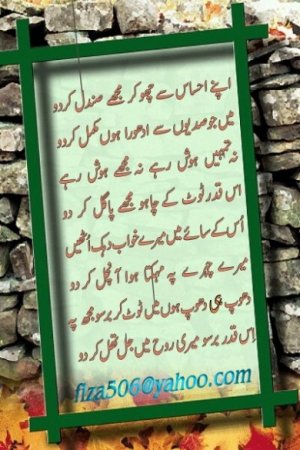 اپنے احساس سے چھو کر مجھے صندل کر دو
میں جو صدیوں سے ادھورا ہوں مکمل کر دو
نہ تمہیں ہوش رہے نہ مجھے ہوش رہے
اس قدر ٹوٹ کے چاہو مجھے پاگل کر دو
اُس کے سائے میں میرے خواب دہک اُٹھیں
میرے چہرے پہ مہکتا ہوا آنچل کر دو
دھوپ ہی دھوپ ہوں میں ٹوٹ کر برسو مجھ پہ
اِس قدر برسو میری روح میں جل تھل کر دو
fiza506@yahoo.com